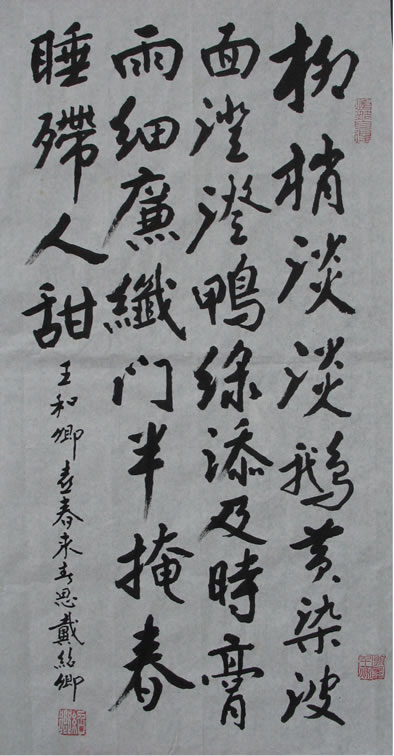 柳梢淡淡鵝黄染波
面澄澄鴨綠添及時膏
雨細廉纖门半掩春
睡殢人甜
王和卿喜春来春思戴紹卿